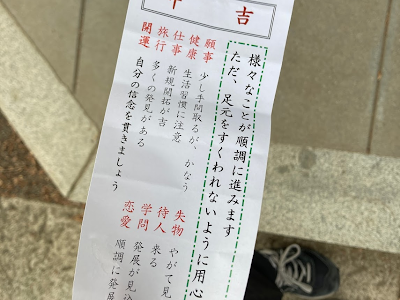 吉
様々なことが順調に進みます
ただ、足元をすくわれないように用心
願事 少し手間取るが、かなう
健康 生活習慣に注意
仕事 新規開拓が吉
旅行 多くの発見がある
開運 自分の信念を貫きましょう
失物 やがて見
待人 来る
学問 発展が見込
恋愛 順調に発展